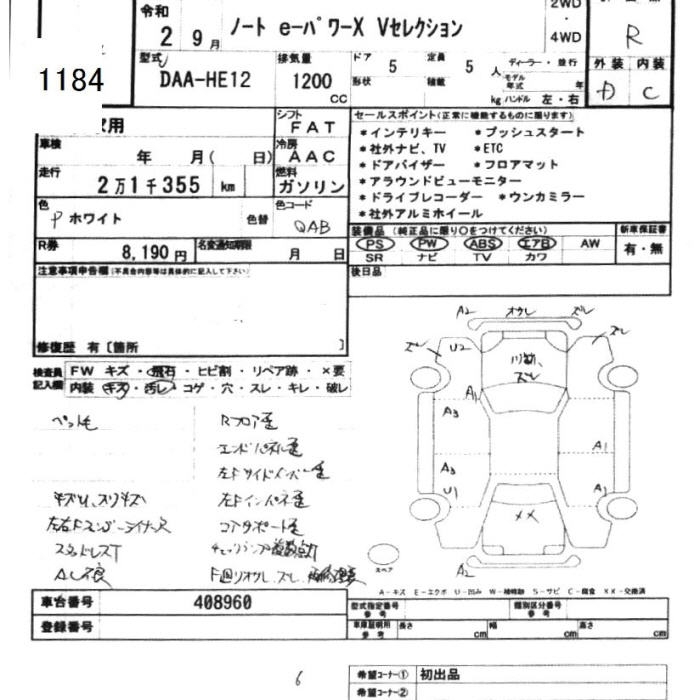 令和
2 9月
ノート e-パワーX Vセレクション
2WD
・
4WD
R
型式
DAA-HE12
排気量
1200
CC
ドア 5
形状
定員 5 人
積載 kg
ディーラー・並行
モデル年式 年
ハンドル 左・右
外装 内装
D C
1184
用
シフト
FAT
車検
年 月( 日)
冷房
AAC
走行
2万1千355 km
燃料
ガソリン
色
P ホワイト
色替
色コード
QAB
R券
8,190円
名変通知期限
月 日
セールスポイント(正常に機能するものに限ります)
*インテリキー *プッシュスタート
*社外ナビ、TV *ETC
*ドアバイザー *フロアマット
*アラウンドビューモニター
*ドライブレコーダー *ウンカミラー
*社外アルミホイール
装備品 (純正品に限り○をつけてください)
PS PW ABS エアB AW
SR ナビ TV カワ
新車保証書
有・無
後日品
注意事項申告欄(不具合内容等は具体的に記入して下さい)
修復歴 有〔箇所 〕
検査員記入欄
FW キズ・飛石・ヒビ割・リペア跡・×要
内装 キズ・汚レ・コゲ・穴・スレ・キレ・破レ
ペット毛
Rフロア歪
エンドパネル歪
左Fサイドメンバー歪
キズU、スリキズ
左Fインパネ歪
左右Fフェンダーライナー欠
コアサポート歪
スタッドレスT
AC臭
A2 オサレ ズレ
ズレ U2 ズレ
A1
A3 A1
A3
U1 A2
××
A2
スペア
A-キズ E-エクボ U-凹み W-補修跡 S-サビ C-腐食 XX-交換済
車台番号
408960
登録番号
型式指定番号
参考
類別区分番号
参考
車庫証明用
参考
長さ cm 幅 cm 高さ cm
6
希望コーナー① 初出品
希望コーナー②